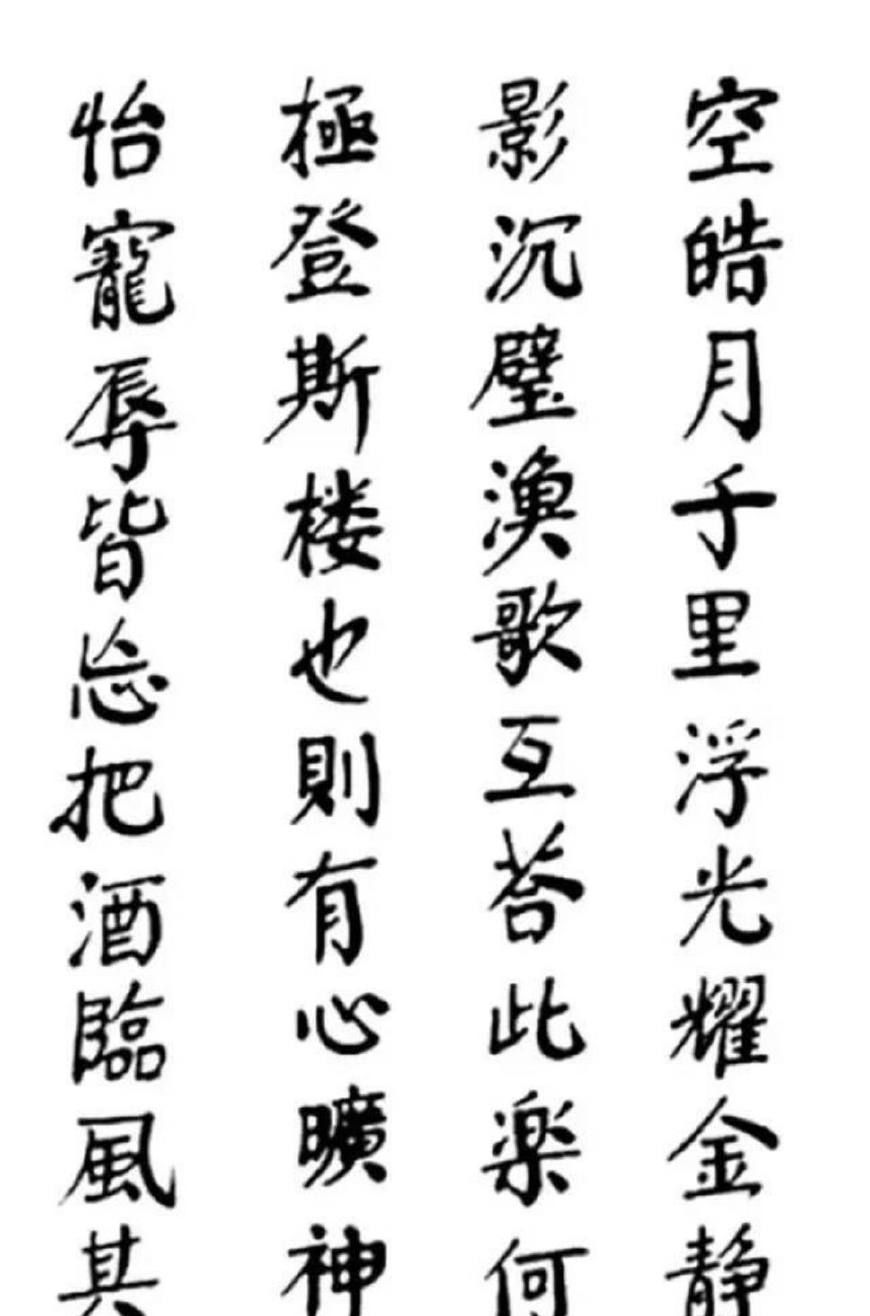 空皓月千里浮光耀金静
影沉璧漁歌互荅此楽何
極登斯楼也則有心曠神
怡寵辱皆忘把酒臨風其